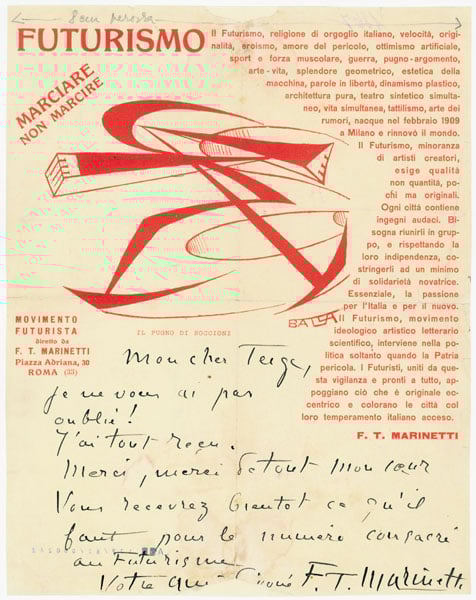 FUTURISMO
MARCIARE
NON MARCIRE
Il Futurismo, religione di orgoglio italiano, velocità, origi-
nalità, eroismo, amore del pericolo, ottimismo artificiale,
sport e forza muscolare, guerra, pugno-argomento,
arte-vita, splendore geometrico, estetica della
macchina, parole in libertà, dinamismo plastico,
architettura pura, teatro sintetico simulta-
neo, vita simultanea, tattilismo, arte dei
rumori, nacque nel febbraio 1909
a Milano e rinnovò il mondo.
Il Futurismo, minoranza
di artisti creatori,
esige qualità
non quantità, po-
chi ma originali.
Ogni città contiene
ingegni audaci. Bi-
sogna riunirli in grup-
po, e rispettando la
loro indipendenza, co-
stringerli ad un minimo
di solidarietà novatrice.
Essenziale, la passione
per l'Italia e per il nuovo.
Il Futurismo, movimento
ideologico artistico letterario
scientifico, interviene nella po-
litica soltanto quando la Patria
pericola. I Futuristi, uniti da que-
sta vigilanza e pronti a tutto, ap-
poggiano ciò che è originale ec-
centrico e colorano le città col
loro temperamento italiano acceso.
F. T. MARINETTI
BALLA
IL PUGNO DI BOCCIONI
MOVIMENTO
FUTURISTA
diretto da
F. T. MARINETTI
Piazza Adriana, 30
ROMA (25)
Mon cher
je ne vous ai pas
oublié!
J'ai tout reçu.
Merci, merci de tout mon cœur
Vous recevrez bientot ce qu'il
faut pour le numéro consacré
au Futurisme
Votre ami F. T. Marinetti